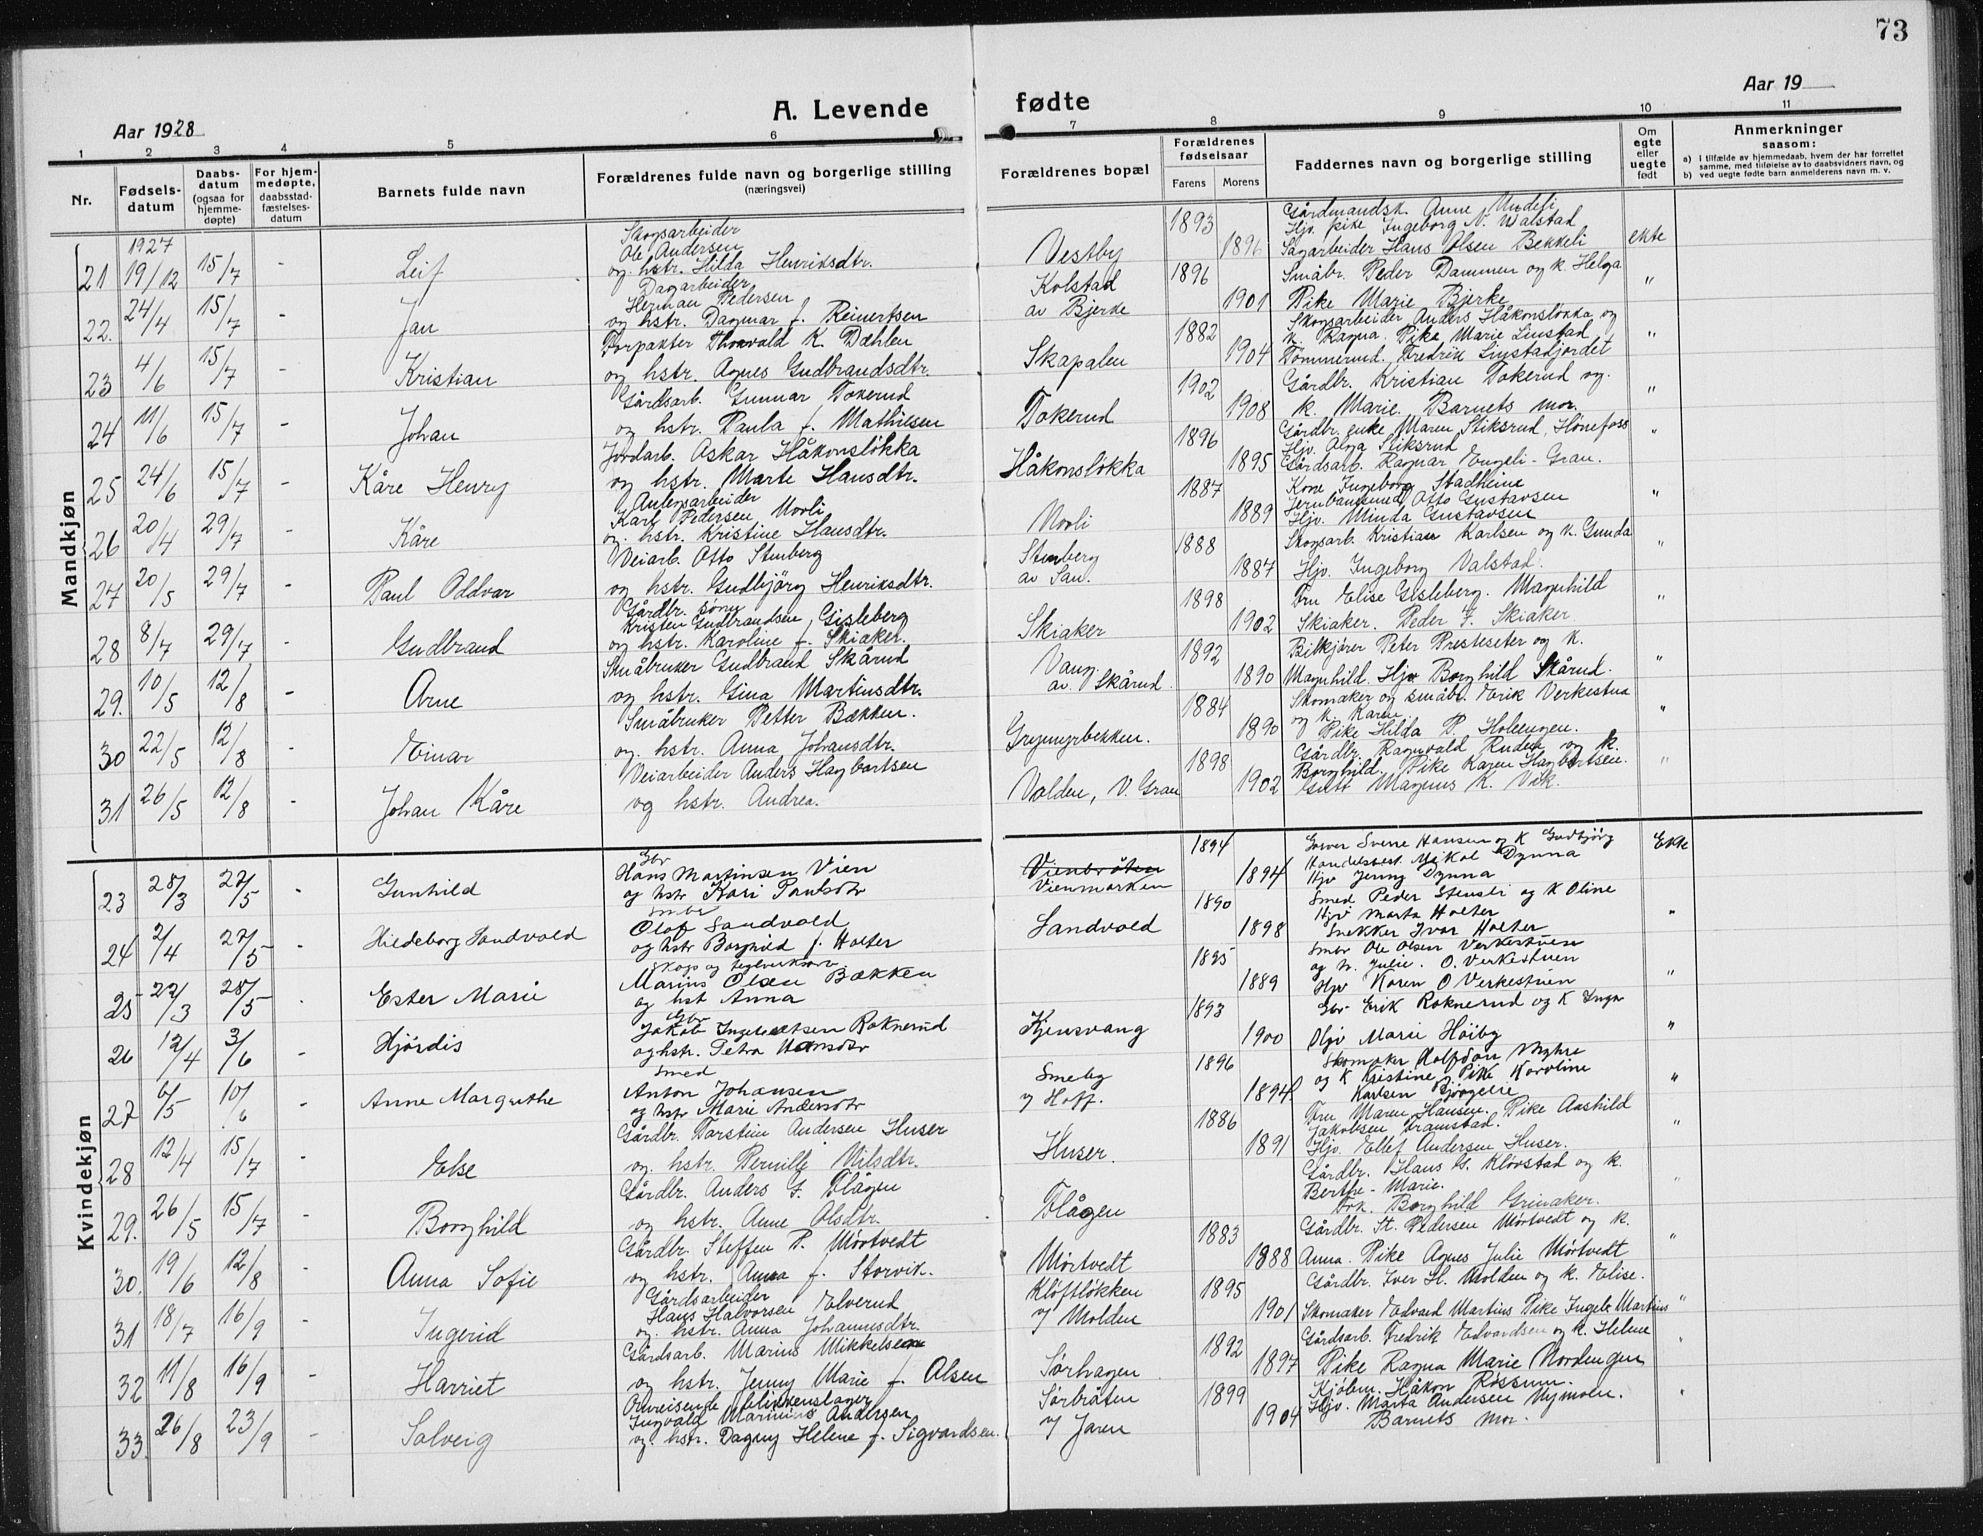 73
Aar 1928
A. Levende fødte
Aar 19
1 2 3 4 5 6 7 8 9 10 11
Nr.
Fødsels-datum
Daabs-datum (ogsaa for hjemme-døpte)
For hjem-medøpte, daabsstad-fæstelses-datum
Barnets fulde navn
Forældrenes fulde navn og borgerlige stilling (næringsvei)
Forældrenes bopæl
Forældrenes fødselsaar
Farens Morens
Faddernes navn og borgerlige stilling
Om egte eller uegte født
Anmerkninger saasom:
a) I tilfælde av hjemmedaab, hvem der har forrettet samme, med tilføielse av to daabsvidners navn, og
b) ved uegte fødte barn anmelderens navn m. v.
Mandkjøn
21 1927 19/12 15/7 - Leif
Skogsarbeider Ole Andersen
og hstr. Hilda Henriksdtr.
Vestby 1893 1896
Gårdmandsk. Anne Undeli
Hjv. pike Ingeborg N. Walstad
Sagarbeider Hans Olsen Bekkeli
ekte
22. 24/4 15/7 - Jan
Dagarbeider Herman Pedersen
og hstr. Dagmar f. Reinertsen
Kolstad av Bjerke 1896 1901
Småbr. Peder Dammen og k. Helga
Pike Marie Bjerke
"
23 4/6 15/7 - Kristian
Forpakter Thorvald K. Dæhlen
og hstr. Agnes Gudbrandsdtr.
Skapalen 1882 1904
Skogsarbeider Anders Håkonsløkka og
k. Ragna. Pike Marie Linstad
Tømmermd. Fredrik Linstadjordet
"
24 11/6 15/7 - Johan
Gårdsarb. Gunnar Tokerud
og hstr. Paula f. Mathiesen
Tokerud 1902 1908
Gårdbr. Kristian Tokerud og
k. Marie. Barnets mor.
"
25 24/6 15/7 - Kåre Henry
Jordarb. Oskar Håkonsløkka
og hstr. Marte Hansdtr.
Håkonsløkka 1896 1895
Gårdbr. enke Maren Stiksrud, Hønefoss
Hjv. Olga Stiksrud
Gårdsarb. Ragnar Engeli - Gran.
"
26 20/4 29/7 - Kåre
Anlegsarbeider Karl Pedersen Morli
og hstr. Kristine Hansdtr.
Morli 1887 1889
Kone Ingeborg Stadheim
Jernbanesmed Otto Gustavsen
Hjv. Minda Gustavsen
"
27 20/5 29/7 - Paul Oddvar
Veiarb. Otto Stenberg
og hstr. Gudbjörg Henriksdtr.
Stenberg av San. 1888 1887
Skogsarb. Kristian Karlsen og k. Gunda
Hjv. Ingeborg Valstad.
"
28 8/7 29/7 - Gudbrand
Gårdbr. sönn Kristen Gudbrandsen Gisleberg
og hstr. Karoline f. Skiaker.
Skiaker 1898 1902
Fru Elise Gisleberg. Magnhild
Skiaker. Peder G. Skiaker
"
29. 10/5 12/8 - Arne
Småbruker Gudbrand Skårud
og hstr. Gina Martinsdtr.
Vang. av. Skårud 1892 1890
Bilkjører Peter Presteseter og k.
Magnhild. Hjv Borghild Skårud.
"
30 22/5 12/8 - Einar
Småbruker Petter Bækken.
og hstr. Anna Johansdtr.
Grymyrbekken. 1884 1890
Skomaker og småbr. Erik Verkestua
og k. Karen
Pike Hilda P. Holengen.
"
31 26/5 12/8 - Johan Kåre
Veiarbeider Anders Hagbartsen
og hstr. Andrea.
Volden, V. Gran 1898 1902
Gårdbr. Ragnvald Ruden og k.
Borghild. Pike Karen Hagbartsen.
Gutt Magnus K. Vik.
"
Kvindekjøn
23 28/3 27/5 - Gunhild
Gbr Hans Martinsen Vien
og hstr Kari Paulsdtr
Vienbråten Vienmarken 1894 1894
Garver Sverre Hansen og K Gudbjörg
Handelsbest. Mikal Dynna
Hjv Jenny Dynna
Ekte
24 2/4 27/5 - Hildeborg Sandvold
Smbr Olof Sandvold
og hstr Borghild f. Holter
Sandvold 1890 1898
Smed Peder Stensli og K Oline
Hjv Marta Holter
Snekker Ivar Holter
"
25 22/3 28/5 - Ester Marie
Skogs og teglverksarb. Marius Olsen Bækken
og hst Anna
1895 1889
Smbr Ole Olsen Verkestuen
og k. Julie. O. Verkestuen
Hjv Karen O Verkestuen
"
26 12/4 3/6 - Hjördis
Gbr Jakob Ingebretsen Roknerud
og hstr. Petra Hansdtr
Kjensvang 1893 1900
Gbr Erik Roknerud og K Inga
Hjv Marie Höiby
"
27 6/5 10/6 - Anne Margrethe
Smed Anton Johansen
og hstr Marie Andersdtr
Smeby v/ Hoff. 1896 1894
Skomaker Halfdan Myhre
og K Kristine, Pike Karoline
Karlsen Bjørgelie
"
28 12/4 15/7 - Else
Gårdbr. Torstein Andersen Huser
og hstr. Pernille Nilsdtr.
Huser. 1886 1891
Fru Maren Hansen. Pike Aashild
Jakobsen Framstad.
Hjv. Ellef Andersen Huser.
"
29. 26/5 15/7 - Borghild
Gårdbr. Anders G. Flågen
og hstr. Anne Olsdtr.
Flågen
Gårdbr. Hans G. Kløvstad og k.
Berthe-Marie.
Frk. Borghild Grinaker.
"
30. 19/6 12/8 - Anna Sofie
Gårdbr. Steffen P. Mörtvedt
og hstr. Anna f. Storvik.
Mörtvedt 1883 1888
Gårdbr. St. Pedersen Mörtvedt og k.
Anna. Pike Agnes Julie Mörtvedt
"
31 18/7 16/9 - Ingerid
Gårdsarbeider Hans Halvorsen Elverud
og hstr. Anna Johannesdtr.
Klöftløkken v/ Molden 1895 1901
Gårdbr. Iver H. Molden og k. Elise.
Skomaker Edvard Martins Pike Ingeb. Martins
"
32 11/8 16/9 - Harriet
Gårdsarb. Marius Mikkelsen
og hstr. Jenny Marie f. Olsen
Sørhagen 1892 1897
Gårdsarb. Fredrik Edvardsen og k. Helene
Pike Ragna Marie Nordengen
"
33. 26/8 23/9 - Solveig
Omreisende blikkenslager Ingvald Marinius Andersen
og hstr. Dagny Helene f. Sigvardsen.
Sørbråten v/ Jaren 1899 1904
Kjöbm. Håkon Rossum.
Hjv. Marta Andersen Nymoen.
Barnets mor.
"